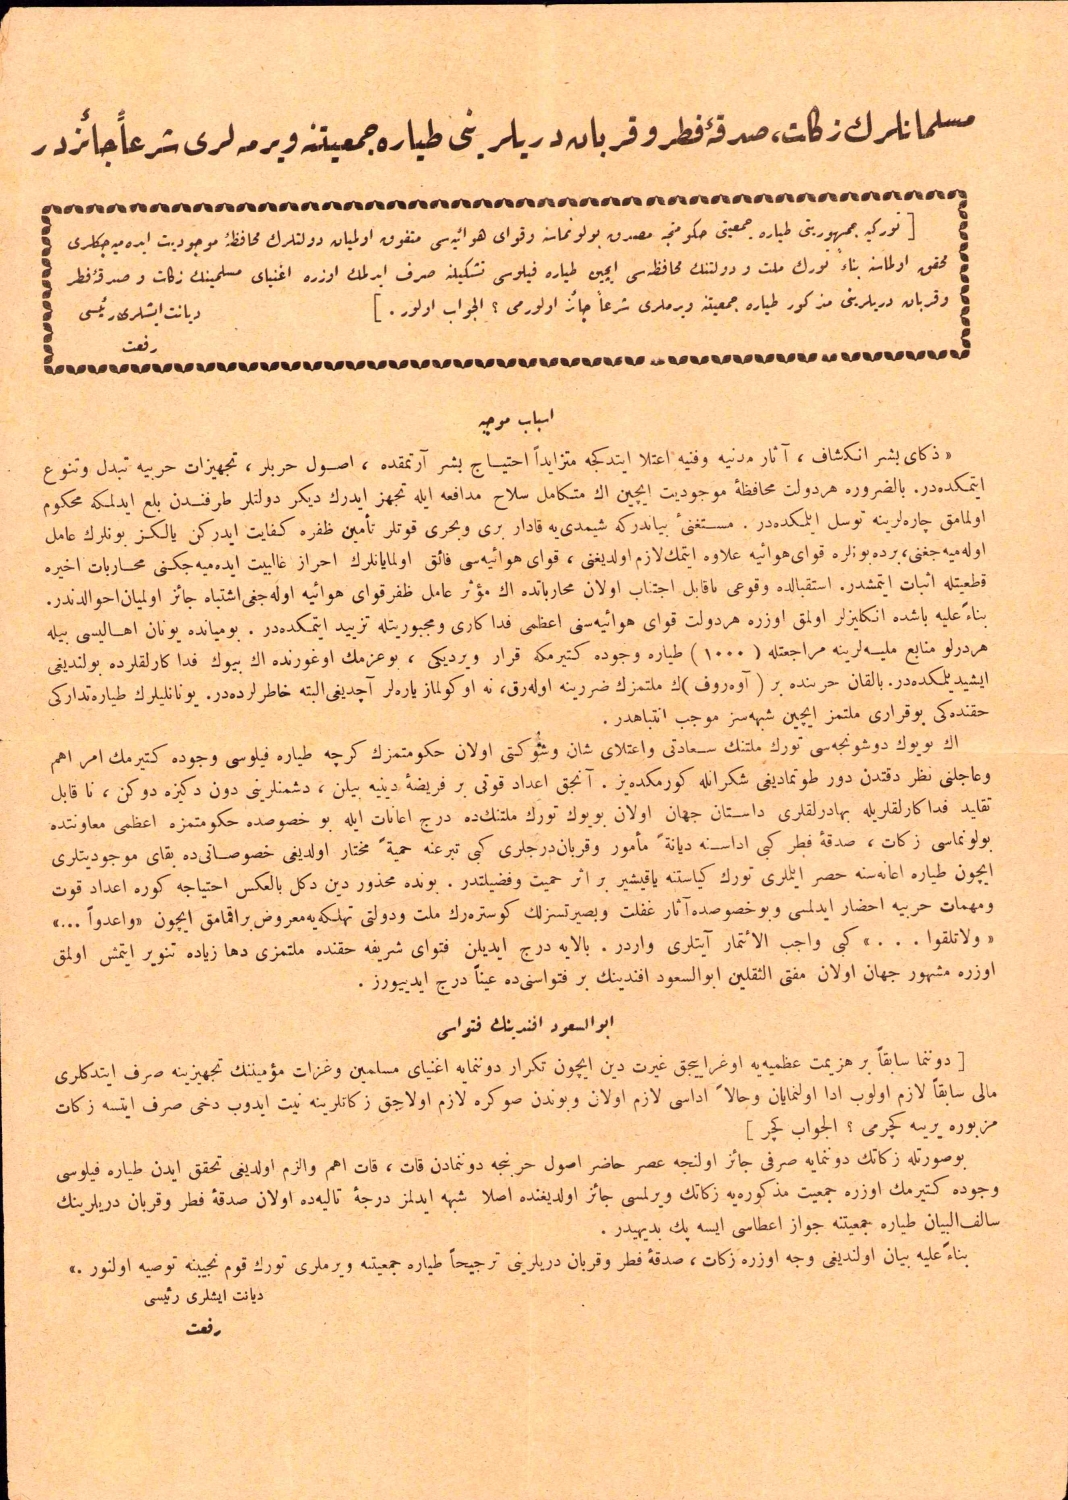 مسلمانلرك زكات، صدقهٔ فطر و قربان دريلرينى طياره جمعيتنه ويرمه‌لرى شرعاً جائزدر
[ توركيه جمهوريتى طياره جمعيتى حكومتجه مصدق بولونماسنه وقواى هوائيه‌سى متفوق اولميان دولتلرك محافظهٔ موجوديت ايده‌ميه‌جكلرى
محقق اولماسنه بناءً تورك ملت و دولتنك محافظه‌سى ايچين طياره فيلوسى تشكيلنه صرف ايدلمك اوزره اغنياى مسلمينك زكات و صدقهٔ فطر
وقربان دريلرينى مذكور طياره جمعيتنه ويرملرى شرعاً جائز اولورمى ؟ الجواب اولور . ]
ديانت ايشلرى رئيسى
رفعت
اسباب موجبه
« ذكاى بشر انكشاف ، آثار مدنيه وفنيه اعتلا ايتدكجه متزايداً احتياج بشر آرتمقده ، اصول حربلر ، تجهيزات حربيه تبدل وتنوع
ايتمكده‌در. بالضروره هردولت محافظهٔ موجوديت ايچين اك متكامل سلاح مدافعه ايله تجهز ايدرك ديكر دولتلر طرفندن بلع ايدلمكه محكوم
اولمامق چاره‌لرينه توسل ايتمكده‌در . مستغنىٔ بياندركه شيمدى‌يه قادار برى وبحرى قوتلر تأمين ظفره كفايت ايدركن يالكز بونلرك عامل
اوله‌ميه‌جغنى، برده بونلره قواى هوائيه علاوه ايتمك لازم اولديغنى ، قواى هوائيه‌سى فائق اولمايانلرك احراز غالبيت ايده‌ميه‌جكنى محاربات اخيره
قطعيتله اثبات ايتمشدر. استقبالده وقوعى ناقابل اجتناب اولان محارباتده اك مؤثر عامل ظفر قواى هوائيه اوله‌جغى اشتباه جائز اولميان احوالدندر.
بناءً عليه باشده انكليزلر اولمق اوزره هردولت قواى هوائيه‌سنى اعظمى فدا كارى ومجبوريتله تزييد ايتمكده‌در . بوميانده يونان اهاليسى بيله
هردرلو منابع مليه‌لرينه مراجعتله ( ١٠٠٠ ) طياره وجوده كتيرمكه قرار ويرديكى ، بوعزمك اوغورنده اك بيوك فدا كارلقلرده بولنديغى
ايشيديلمكده‌در. بالقان حربنده بر ( آوه‌روف )ك ملتمزك ضررينه اوله‌رق، نه اوكولماز ياره‌لر آچديغى البته خاطرلرده‌در. يونانليلرك طياره تداركى
حقنده‌كى بوقرارى ملتمز ايچين شبهه‌سز موجب انتباهدر .
اك بويوك دوشونجه‌سى تورك ملتنك سعادتى واعتلاى شان وشوكتى اولان حكومتمزك كرچه طياره فيلوسى وجوده كتيرمك امر اهم
وعاجلنى نظر دقتدن دور طوتماديغى شكرانله كورمكده‌يز . آنجق اعداد قوتى بر فريضهٔ دينيه بيلن ، دشمنلرينى دون دكيزه دوكن ، نا قابل
تقليد فداكارلقلريله بهادرلقلرى داستان جهان اولان بويوك تورك ملتنك‌ده درج اعانات ايله بو خصوصده حكومتمزه اعظمى معاونتده
بولونماسى زكات ، صدقهٔ فطر كبى اداسنه ديانةً مأمور وقربان درجلرى كبى تبرعنه حميةً مختار اولديغى خصوصاتى‌ده بقاى موجوديتلرى
ايچون طياره اعانه‌سنه حصر ايتملرى تورك كياستنه ياقيشير بر اثر حميت وفضيلتدر . بونده محذور دين دكل بالعكس احتياجه كوره اعداد قوت
ومهمات حربيه احضار ايدلمسى وبو خصوصده آثار غفلت وبصيرتسزلك كوستره‌رك ملت ودولتى تهلكه‌يه معروض براقمامق ايچون «واعدواً ...»
« ولاتلقوا . . . » كبى واجب الائتمار آيتلرى واردر . بالايه درج ايديلن فتواى شريفه حقنده ملتمزى دها زياده تنوير ايتمش اولمق
اوزره مشهور جهان اولان مفتى الثقلين ابوالسعود افندينك بر فتواسنى‌ده عيناً درج ايدييورز .
ابوالسعود افندينك فتواسى
[ دوننما سابقاً بر هزيمت عظميه‌يه اوغراييجق غيرت دين ايچون تكرار دوننمايه اغنياى مسلمين وغزات مؤمنينك تجهيزينه صرف ايتدكلرى
مالى سابقاً لازم اولوب ادا اولنمايان وحالاً اداسى لازم اولان وبوندن صوكره لازم اولاجق زكاتلرينه نيت ايدوب دخى صرف ايتسه زكات
مزبوره يرينه كچرمى ؟ الجواب كچر ]
بوصورتله زكاتك دوننمايه صرفى جائز اولنجه عصر حاضر اصول حربنجه دوننمادن قات ، قات اهم والزم اولديغى تحقق ايدن طياره فيلوسى
وجوده كتيرمك اوزره جمعيت مذكوره‌يه زكاتك ويرلمسى جائز اولديغنده اصلا شبهه ايدلمز درجهٔ تاليه‌ده اولان صدقهٔ فطر وقربان دريلرينك
سالف‌البيان طياره جمعيتنه جواز اعطاسى ايسه پك بديهيدر .
بناءً عليه بيان اولنديغى وجه اوزره زكات ، صدقهٔ فطر وقربان دريلرينى ترجيحاً طياره جمعيتنه ويرملرى تورك قوم نجيبنه توصيه اولنور .»
ديانت ايشلرى رئيسى
رفعت